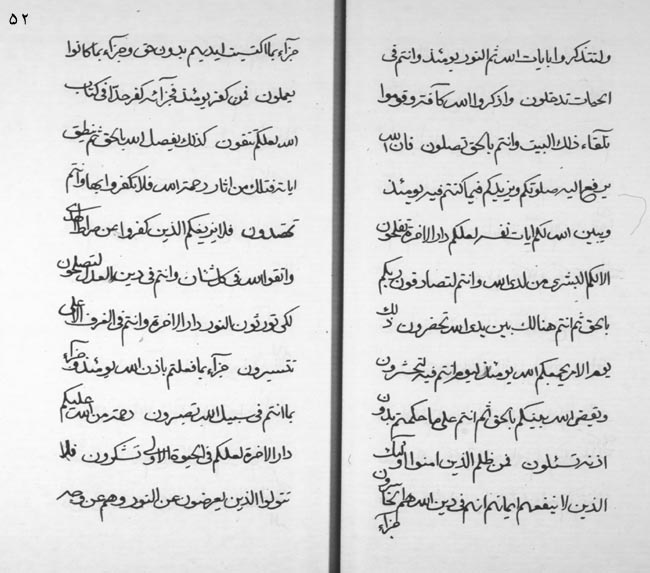 ولتتذكروا بايات الله ثم النور يومئذ وانتم فى
الحيات تدخلون واذكروا الله كآفة وقوموا
تلقآء ذلك البيت وانتم بالحق تصلون فان الله
يرفع اليه صلوتكم ويزيدكم فيما كنتم فيه يومئذ
ويبين الله لكم ايات لعلكم دار الاخرة تفلحون
الا لكم البشرى من لدى الله وانتم لتصادقون ربكم
بالحق ثم انتم هنالك بين يدى الله تحضرون ذلك
يوم الامر يجمعكم الله يومئذ ليوم انتم فيه لتحشرون
ويقضى الله بينكم بالحق ثم انتم على ما حكمتم بدون
اذنه تسئلون فمن ظلم الذين امنوا اولئك
الذين لا ينفعهم ايمانهم انهم فى دين الله هم الخآسرون
جزآء
٥٢
جزآء بما اكتسبت ايديهم بدون حق وجزآء بما كانوا
يعملون فمن كفر يومئذ فجزآئه كفر فى كتاب
الله لعلكم تتقون كذلك يفصل الله بالحق ثم ينطق
اياته من اثار رحمة الله فلا تكفروا بها وانتم
تهتدون فلا الذين كفروا عن صراط
واتقوا الله فى كل شان وانتم فى دين العدل لتصلحون
لكى تورثون النور دار الاخرة وانتم فى الغرف الاعلى
تتسيرون جزآء بما فعلتم باذن الله يومئذ وجزآء
بما انتم فى سبيل الله تصبرون رحمة من الله عليكم
دار الاخرة لعلكم فى الحيوة الاولى تشكرون فلا
تتولوا الذين يعرضون عن النور وهم عن وجه